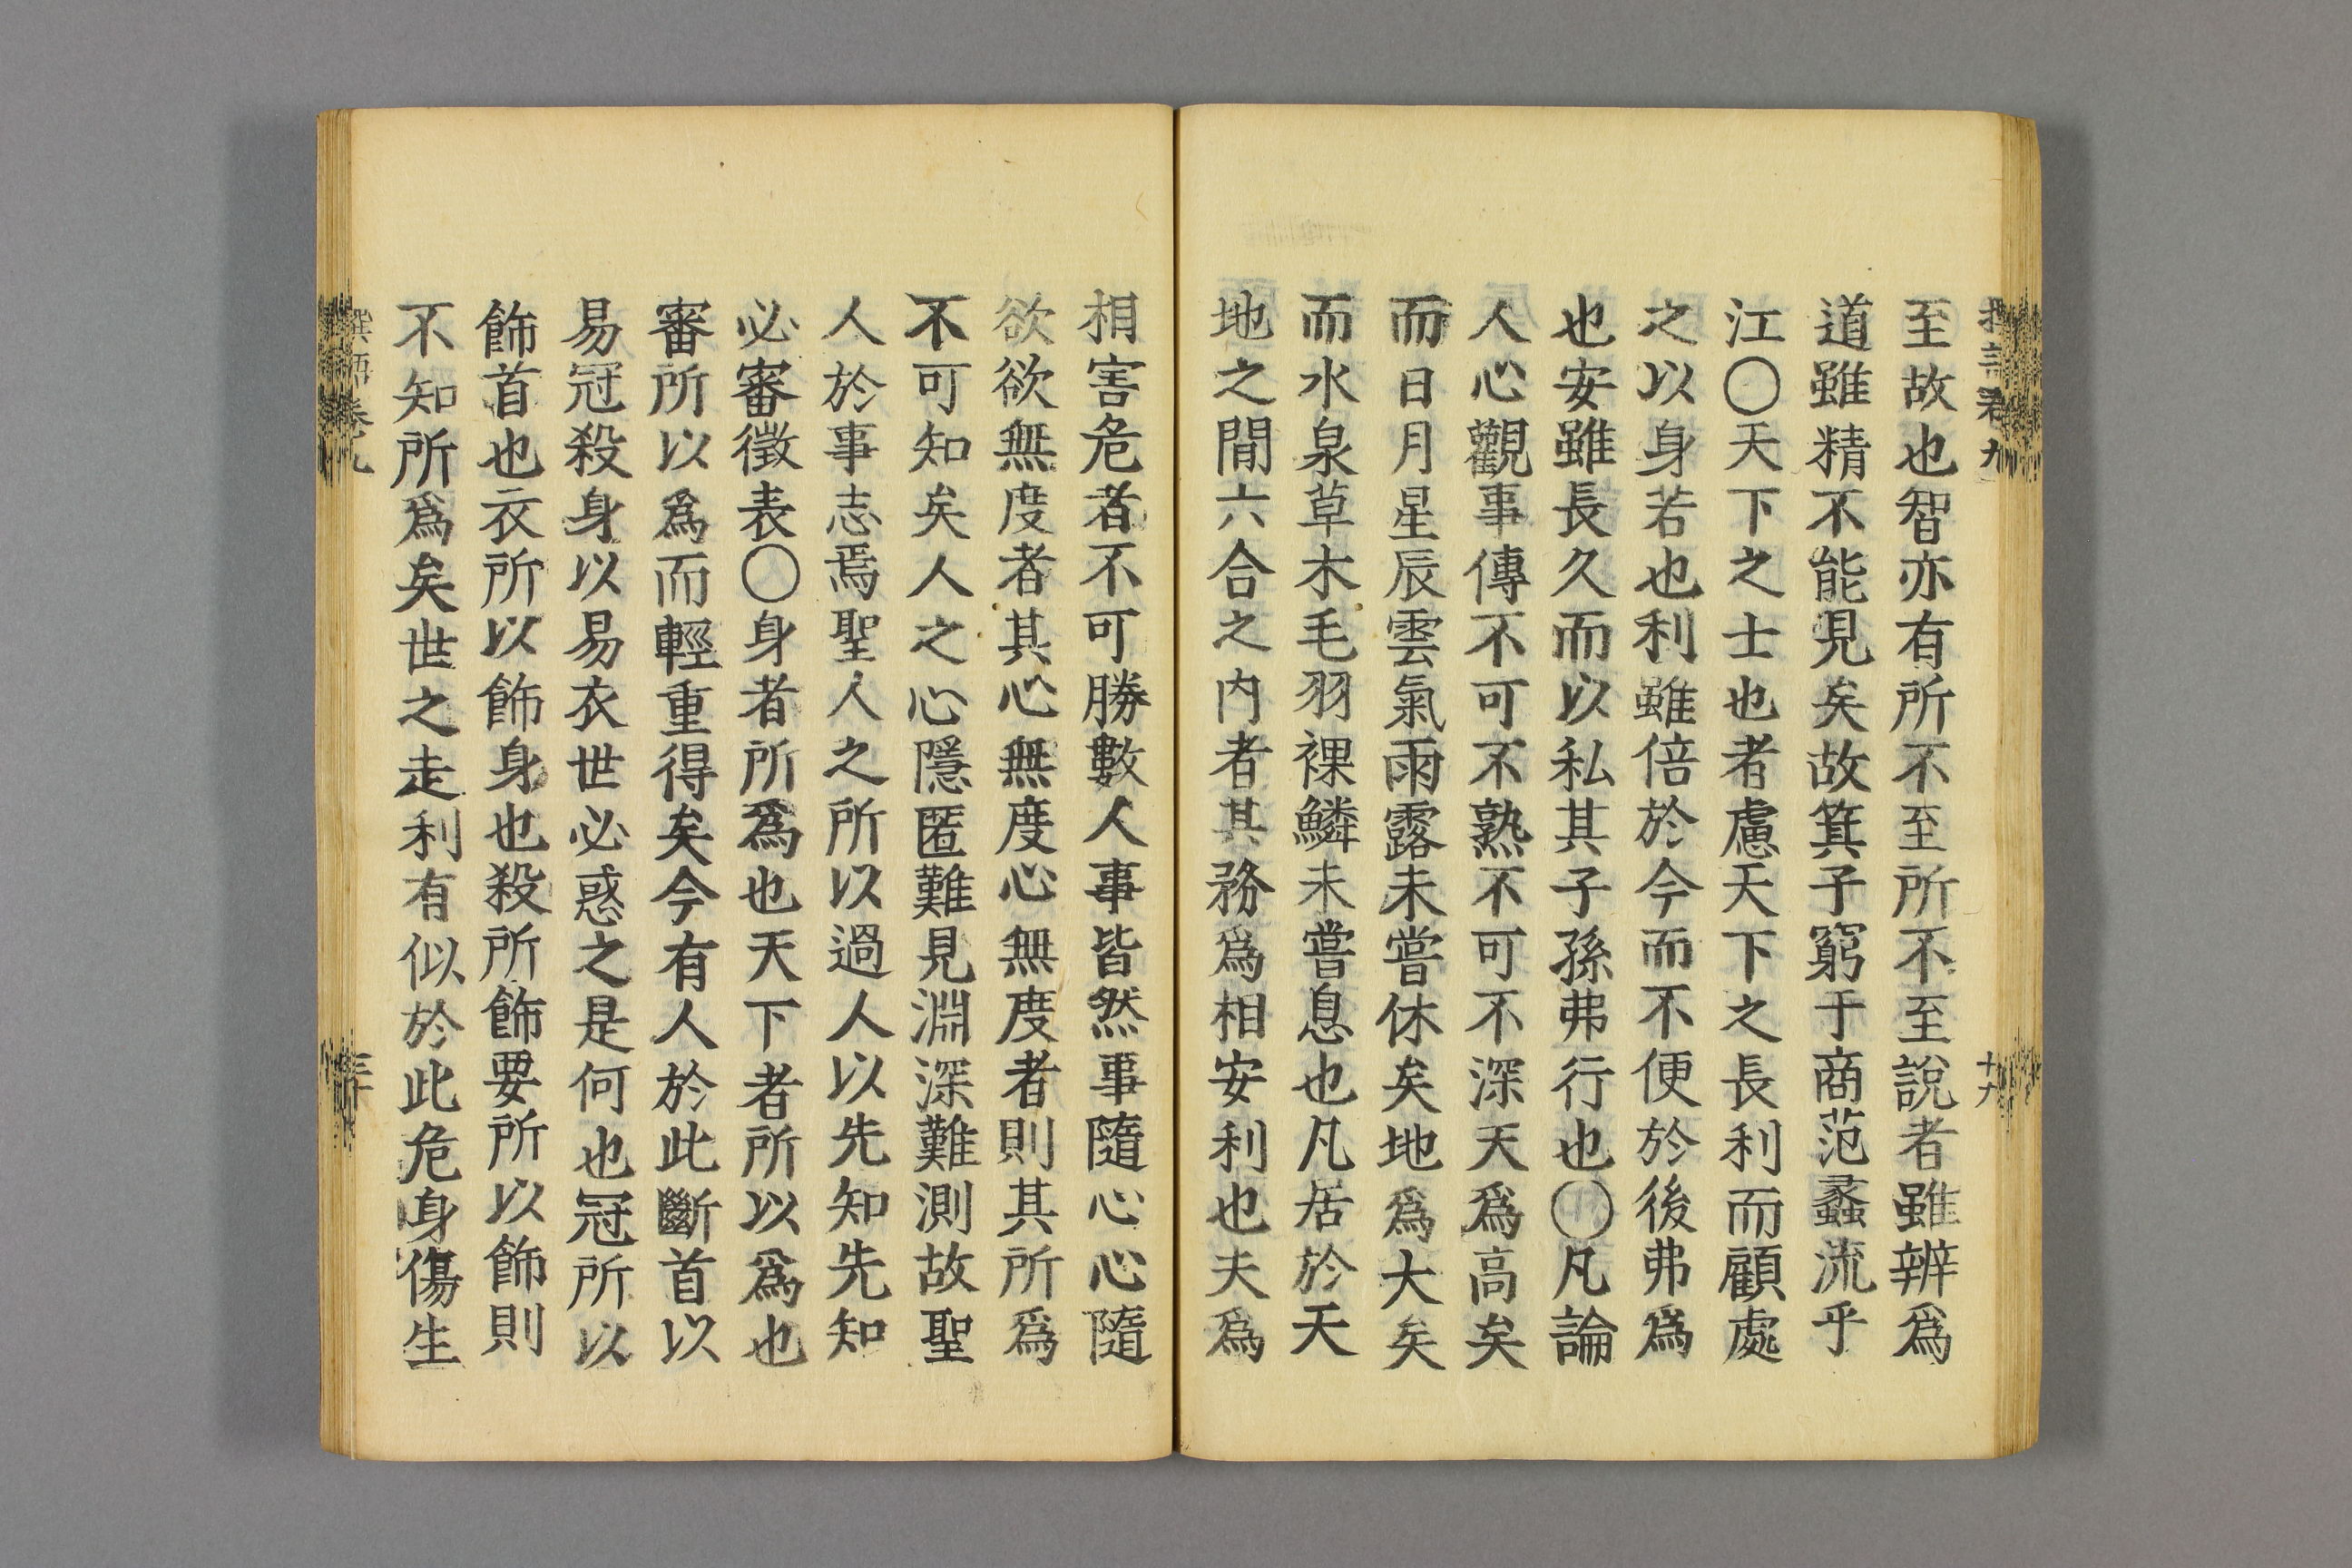 至故也智亦有所不至所不至說者雖辨爲
道雖精不能見矣故箕子窮于商范蠡流乎
江〇天下之士也者慮天下之長利而顧處
之以身若也利雖倍於今而不便於後弗爲
也安雖長久而以私其子孫弗行也〇凡論
人心觀事傳不可不熟不可不深天爲高矣
而日月星辰雲氣雨露未嘗休矣地爲大矣
而水泉草木毛羽裸鱗未嘗息也凡居於天
地之間六合之内者其務爲相安利也夫爲
相害危者不可勝數人事皆然事隨心心隨
欲欲無度者其心無度心無度者則其所爲
不可知矣人之心隱匿難見淵深難測故聖
人於事志焉聖人之所以過人以先知先知
必審徵表〇身者所爲也天下者所以爲也
審所以爲而輕重得矣今有人於此斷首以
易冠殺身以易衣世必惑之是何也冠所以
飾首也衣所以飾身也殺所飾要所以飾則
不知所爲矣世之走利有似於此危身傷生